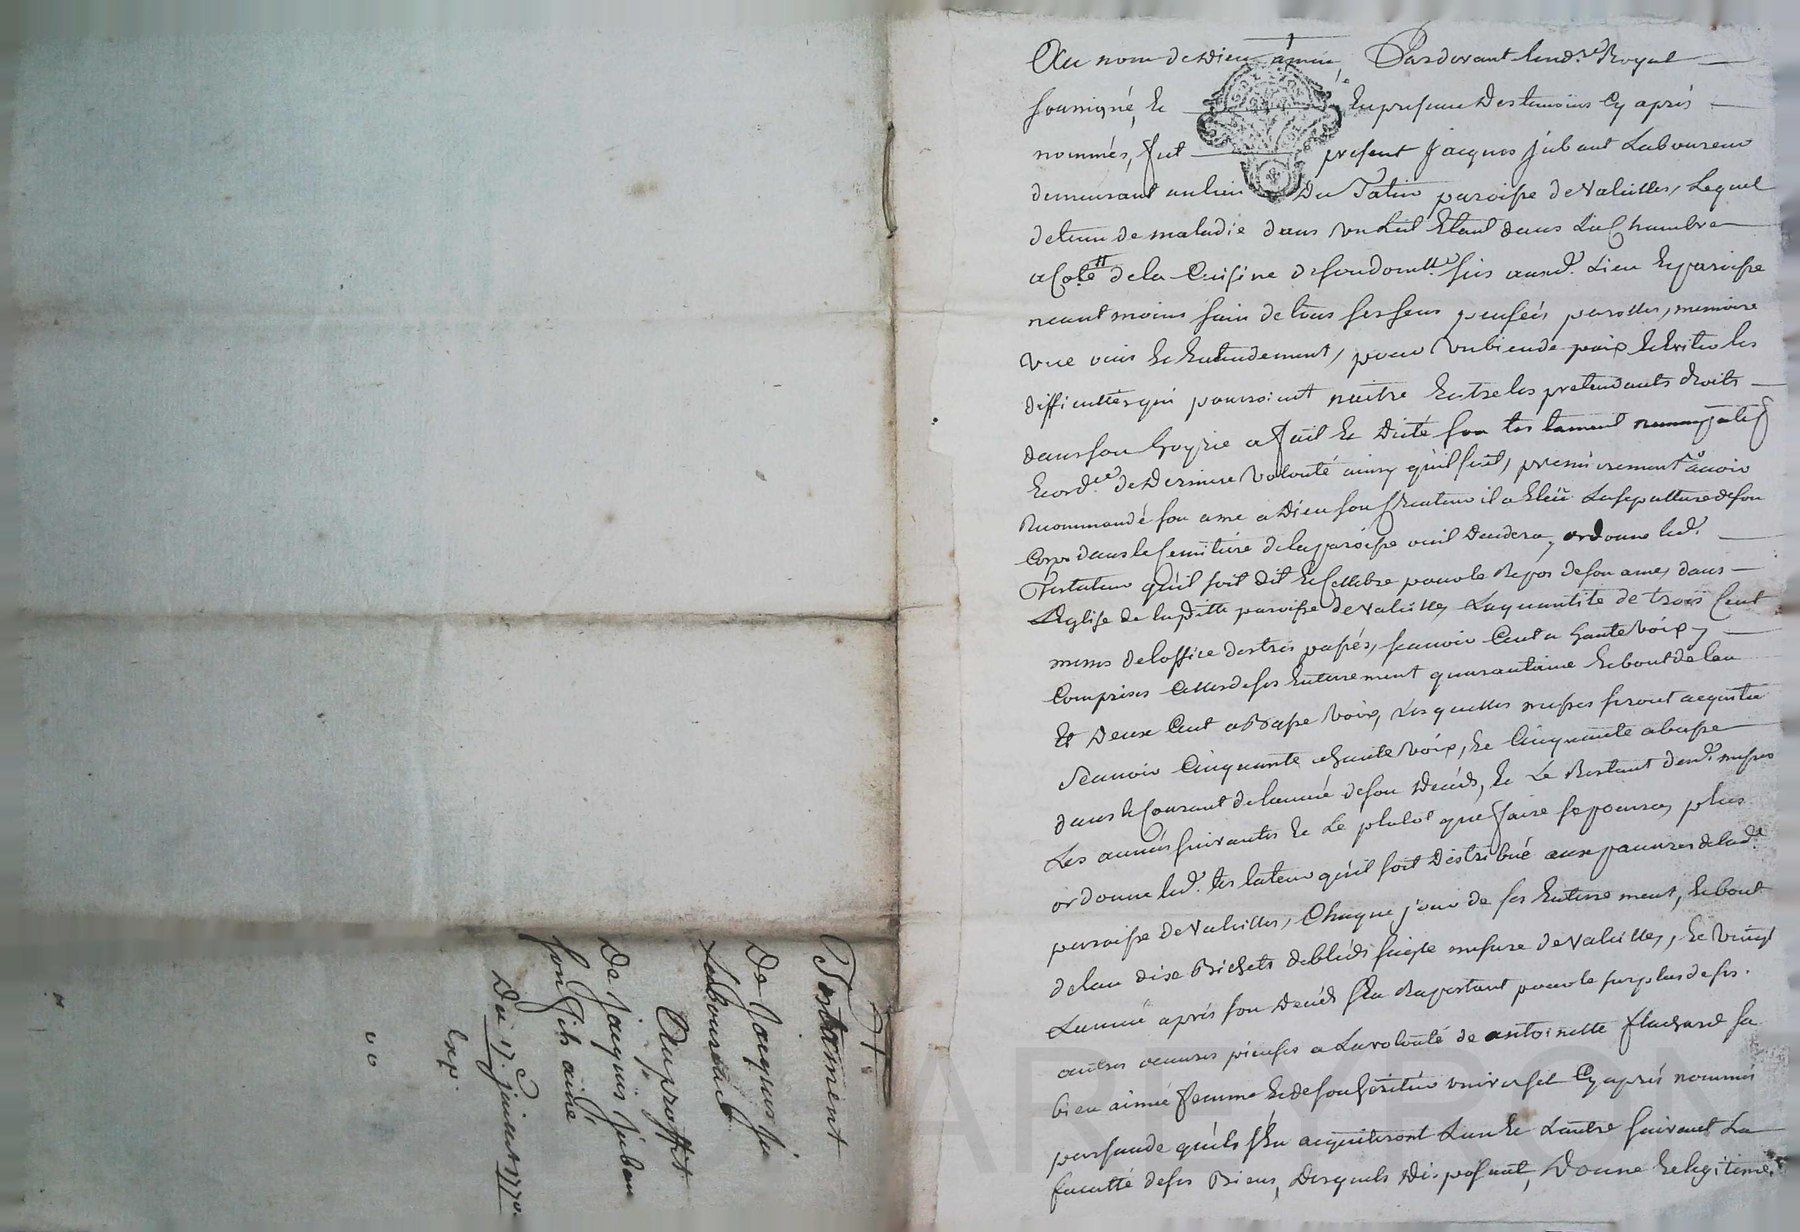 Testament
De Jacques Ju
Laboureur
Au proffit
De Jacques Juban
son fils aisné
Du 17e janvier 1770.
Exp.
Au nom de Dieu amen, Pardevant le nore Royal
soussigné, Et En presence Des temoins Cy aprés
nommés, fut present Jacques Jubant Laboureur
demeurant au lieu Du Patin paroisse de Valeilles, Lequel
detenu de maladie dans un Lit Etant dans La Chambre
a Coté de la Cuisine de son domlle sis aud. Lieu Et paroisse
neantmoins sain de tous ses sens pensées parolles, memoire
vue ouie Et Entendement, pour un bien de paix Et Eviter les
difficultes qui pourroient naitre Entre les pretendants droits
dans son hoyrie a fait Et Dicté son testament nuncupatif
Et ordce de Derniere Volonté ainsy qu'il suit, premierement avoir
Recommandé son ame a Dieu son Createur il a Eleü La sepulture de son
Corps dans le Cemitiére de la paroisse ou il Decedera, ordonne led.
Testateur qu'il soit dit Et Cellebre pour le Repos de son ame, dans
L'Eglise de laditte paroisse de Valeilles, La quantité de trois Cent
messes de loffice des trepassés, scavoir Cent a haute voix,
Comprises Celles de ses Enterrement quarantaine Et bout de lan
Et Deux Cent a Basse voix, Lesquelles messes seront acquitée
scavoir Cinquante a haute voix, Et Cinquante a basse
dans le Courant de lannée de son Decéds, Et Le Restant desd. messes
Les années suivantes Et Le plutot que faire se pourra, plus
ordonne led. testateur qu'il soit Distribué aux pauvres de lad.
paroisse de Valeilles, Chaque jour de ses Enterrement, Et bout
de lan dix Bichets de bled seigle mesure de Valeilles,
Lannée aprés son Decéds sEn Raportant pour le surplus de ses
autres oeuvres pieuses a La volonté de antoinette flachard sa
bien aimée femme Et de son héritier universel Cy aprés nommés
persuadé qu'ils sEn acquiteront Lun Et Lautre suivant La
faculté de ses Biens, Desquels Disposant, Donne Et legitime
AREYRON